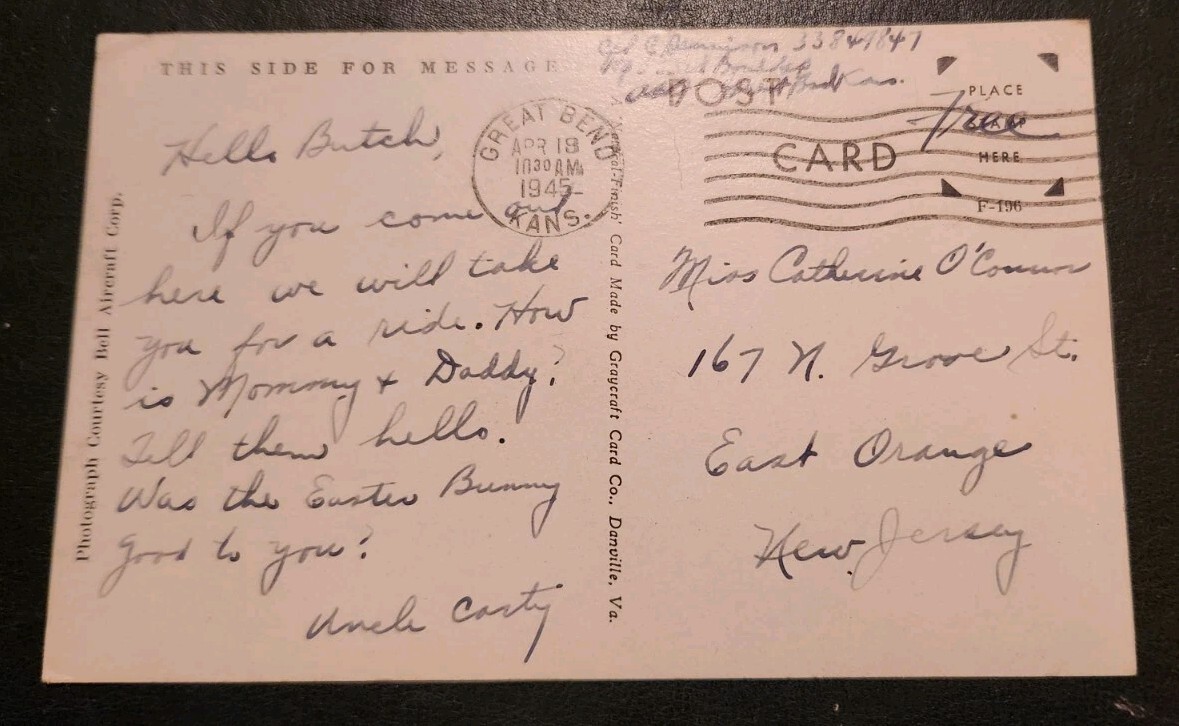 THIS SIDE FOR MESSAGE
Hello Butch,
If you come out
here we will take
you for a ride. How
is Mommy + Daddy?
Tell them hello.
Was the Easter Bunny
good to you?
Uncle Carty
Photograph Courtesy Bell Aircraft Corp.
GREAT BEND
APR 18
10 30 AM
1945
KANS.
Card Made by Graycraft Card Co., Danville, Va.
33849847
Kans.
POST
CARD
PLACE
HERE
F-196
Free
Miss Catherine O'Connor
167 N. Grove St.
East Orange
New Jersey